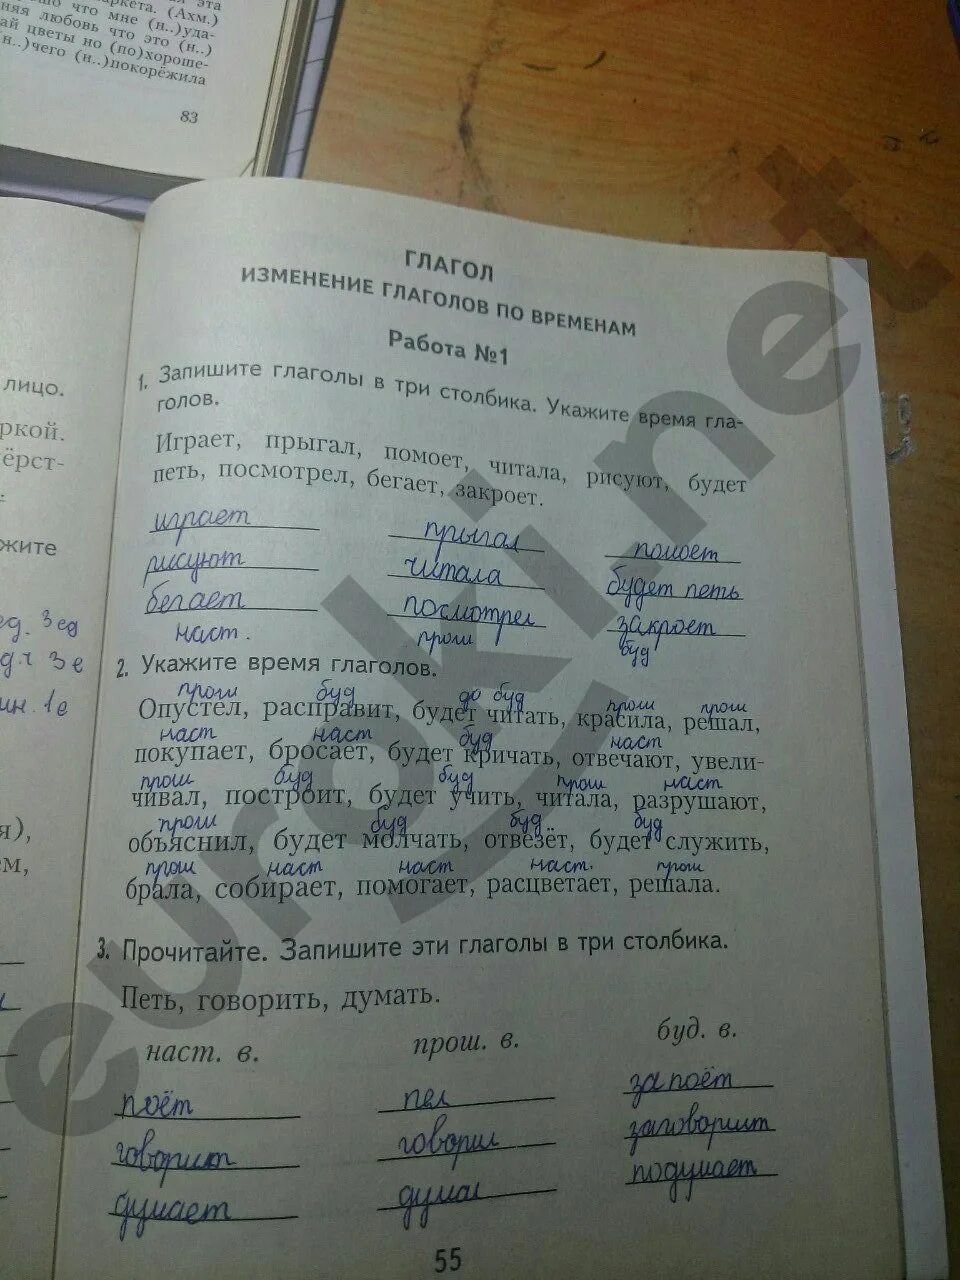 аркета. (Ахм.)
что мне (н..)уда-
няя любовь что это (н..)
ай цветы но (по)хороше-
(н..)чего (н..)покорёжила
83
лицо.
ркой.
ёрст-
жите
ед. 3 ед
3 е
ин. 1 е
я),
ем,
ГЛАГОЛ
ИЗМЕНЕНИЕ ГЛАГОЛОВ ПО ВРЕМЕНАМ
Работа №1
1. Запишите глаголы в три столбика. Укажите время гла-
голов.
Играет, прыгал, помоет, читала, рисуют, будет
петь, посмотрел, бегает, закроет.
играет прыгал помоет
рисуют читала будет петь
бегает посмотрел закроет
наст. прош буд
2. Укажите время глаголов.
прош буд буд прош прош
Опустел, расправит, будет читать, красила, решал,
наст наст буд наст
покупает, бросает, будет кричать, отвечают, увели-
прош буд буд прош наст
чивал, построит, будет учить, читала, разрушают,
прош буд буд буд
объяснил, будет молчать, отвезёт, будет служить,
прош наст наст наст. прош
брала, собирает, помогает, расцветает, решала.
3. Прочитайте. Запишите эти глаголы в три столбика.
Петь, говорить, думать.
наст. в. прош. в. буд. в.
поёт пел запоёт
говорит говорил заговорит
думает думал подумает
55
euroki.net